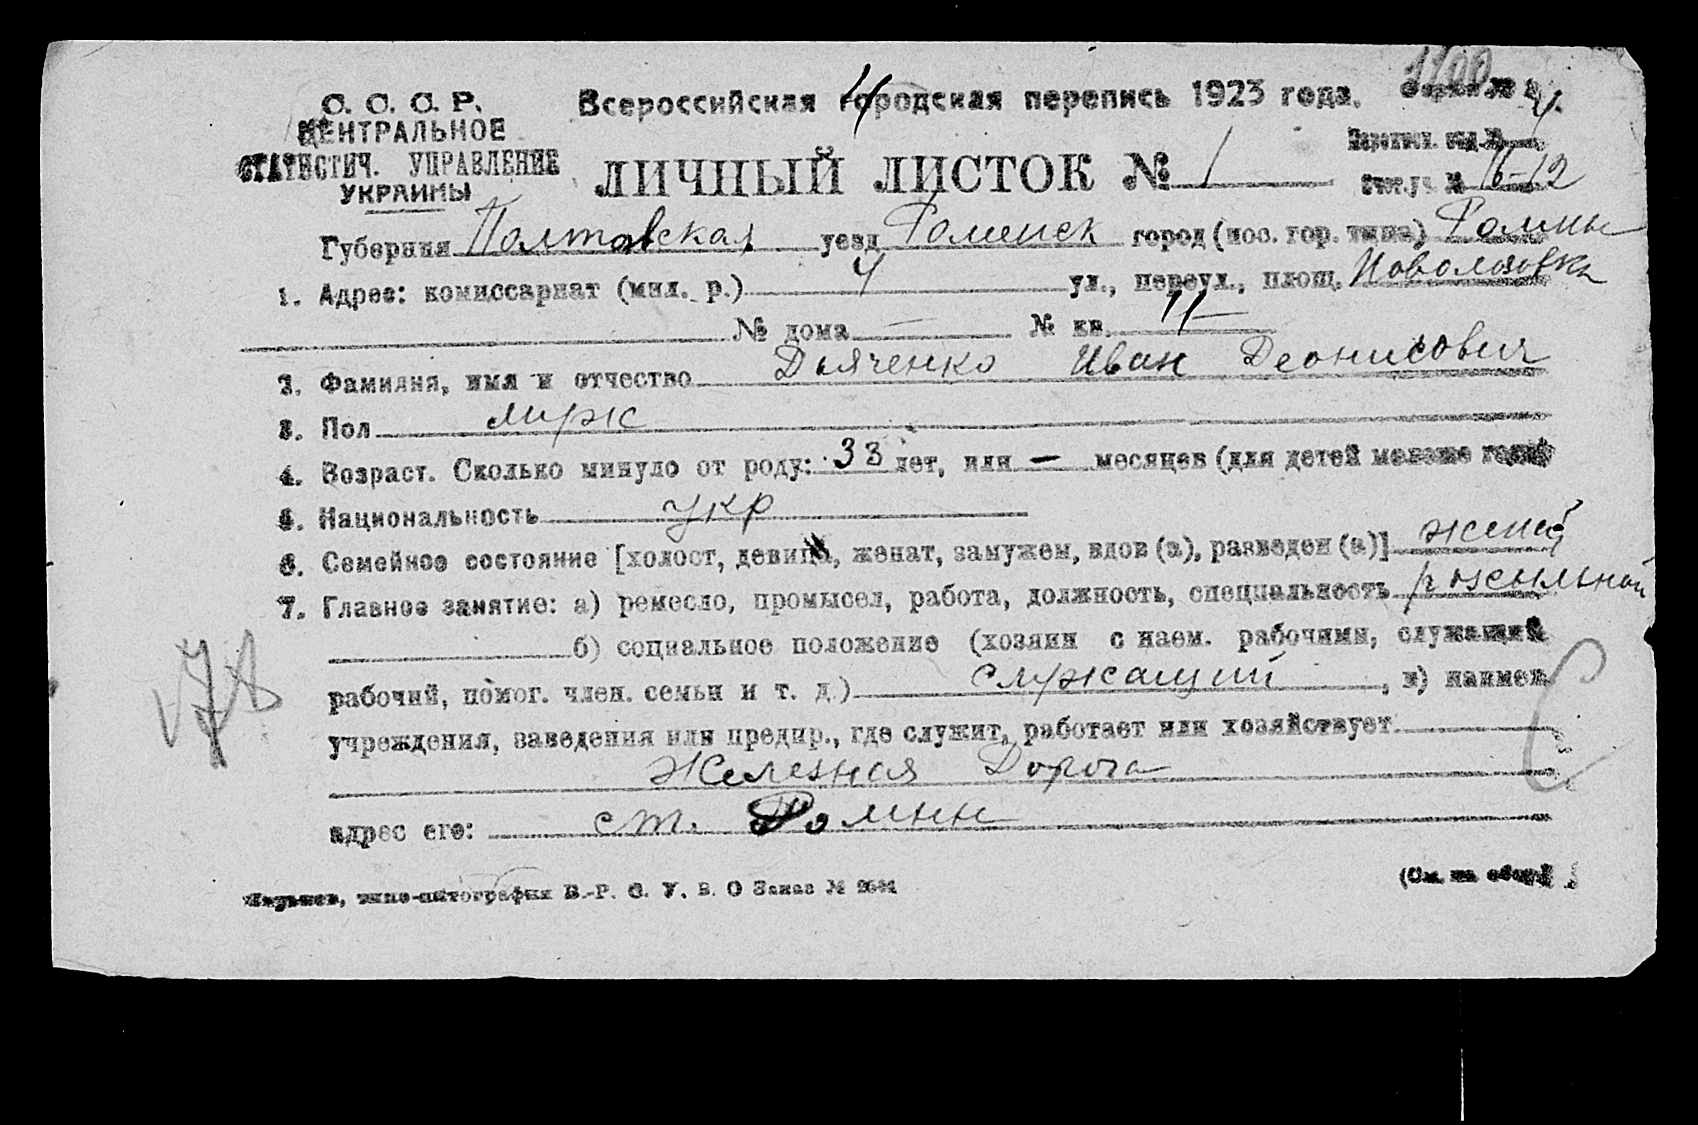 1100
С. С. С. Р.
ЦЕНТРАЛЬНОЕ
СТАТИСТИЧ. УПРАВЛЕНИЕ
УКРАИНЫ
Всероссийская городская перепись 1923 года.
ЛИЧНЫЙ ЛИСТОК № 1
16-12
Губерния Полтавская уезд Роменск город (пос. гор. типа) Ромны
1. Адрес: комиссариат (мил. р.) 4 ул., переул., площ.
№ дома — № кв. 11
2. Фамилия, имя и отчество Дьяченко Иван Деонисович
3. Пол муж
4. Возраст. Сколько минуло от роду: 33 лет, или — месяцев (для детей меньше года)
5. Национальность укр
6. Семейное состояние [холост, девица, женат, замужем, вдов (а), разведен (а)]
7. Главное занятие: а) ремесло, промысел, работа, должность, специальность
б) социальное положение (хозяин с наем. рабочими, служащий
рабочий, помог. член. семьи и т. д.) служащий, в) наимен
учреждения, заведения или предпр., где служит, работает или хозяйствует
Железная Дорога
адрес его: ст. Ромны
типо-литография В.-Р. С. У. В. О Заказ №
(См. на обор.)